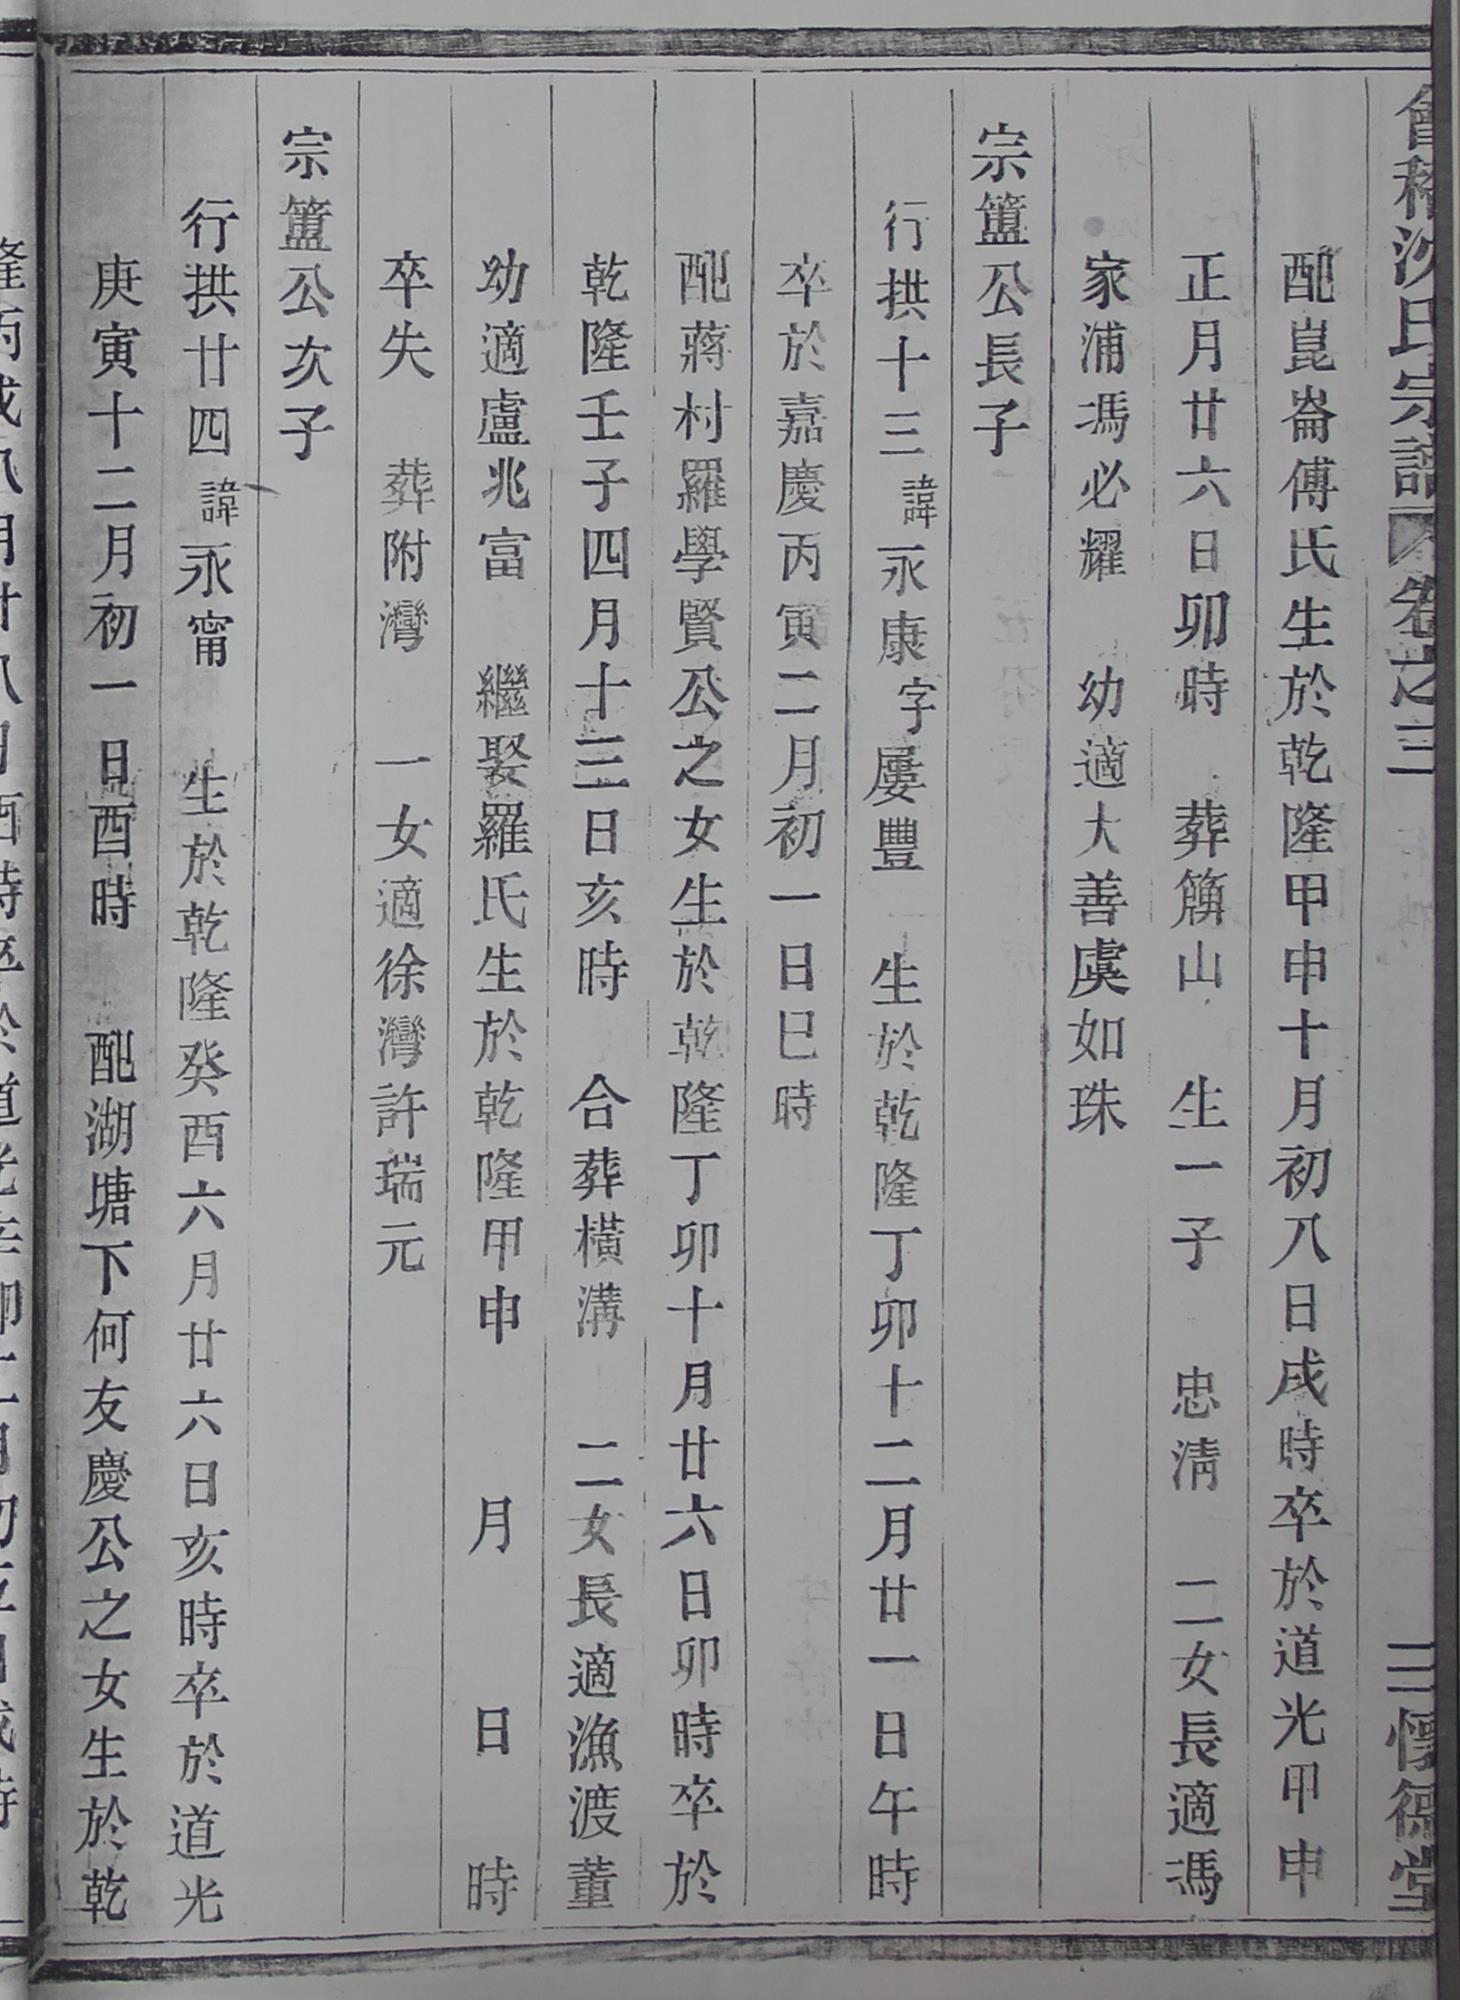 會稽沈氏宗譜 卷之三 三 懷德堂
配崑崙傅氏生於乾隆甲申十月初八日戌時卒於道光甲申
正月廿六日卯時 葬簡山 生一子 忠清 二女長適馮
家浦馮必耀 幼適大善虞如珠
宗簠公長子
行拱十三諱永康字屢豐 生於乾隆丁卯十二月廿一日午時
卒於嘉慶丙寅二月初一日巳時
配蔣村羅學賢公之女生於乾隆丁卯十月廿六日卯時卒於
乾隆壬子四月十三日亥時 合葬橫溝 二女長適漁渡董
幼適盧兆富 繼娶羅氏生於乾隆甲申 月 日 時
卒失 葬附灣 一女適徐灣許瑞元
宗簠公次子
行拱廿四諱永甯 生於乾隆癸酉六月廿六日亥時卒於道光
庚寅十二月初一日酉時 配湖塘下何友慶公之女生於乾
隆丙戌八月廿八日酉時卒於道光辛卯十一月初五日戌時